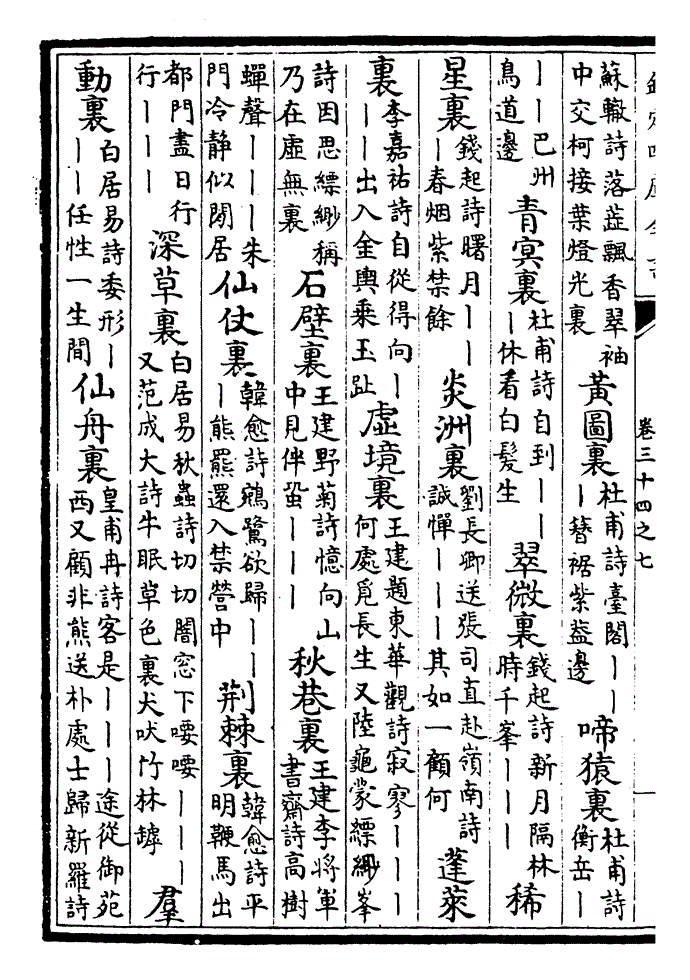 欽定四庫全書
卷三十四之七
蘇轍詩落蕋飄香翠袖
中交柯接葉燈光裏
黃圖裏
杜甫詩臺閣丨丨
丨簪裾紫葢邊
啼猿裏
杜甫詩
衡岳丨
丨丨巴州
鳥道邊
青冥裏
杜甫詩自到丨丨
丨休看白髮生
翠微裏
錢起詩新月隔林
時千峯丨丨丨
稀
星裏
錢起詩曙月丨丨
丨春烟紫禁餘
炎洲裏
劉長卿送張司直赴嶺南詩
誠憚丨丨丨其如一顧何
蓬萊
裏
李嘉祐詩自從得向丨
丨丨出入金輿乘玉趾
虛境裏
王建題東華觀詩寂寥丨丨丨
何處覓長生又陸龜蒙縹緲峯
詩因思縹緲稱
乃在虛無裏
石壁裏
王建野菊詩憶向山
中見伴蛩丨丨丨
秋巷裏
王建李將軍
書齋詩高樹
蟬聲丨丨丨朱
門冷静似閒居
仙仗裏
韓愈詩鵷鷺欲歸丨丨
丨熊羆還入禁營中
荆棘裏
韓愈詩平
明鞭馬出
都門盡日行
行丨丨丨
深草裏
白居易秋蟲詩切切闇窓下喓喓丨丨丨
又范成大詩牛眠草色裏犬吠竹林罅
羣
動裏
白居易詩委形丨
丨丨任性一生間
仙舟裏
皇甫冉詩客是丨丨丨途從御苑
西又顧非熊送朴處士歸新羅詩